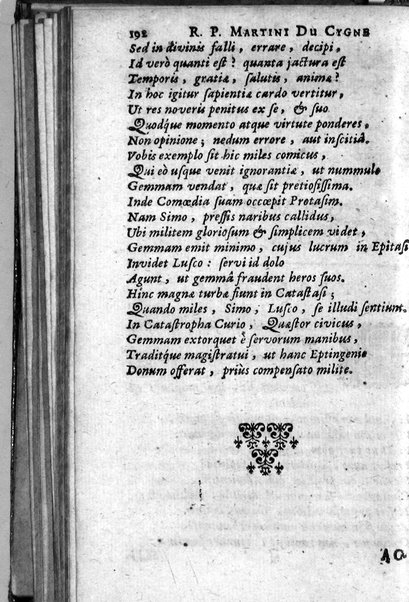 192 R. P. MARTINI DU CYGNE
Sed in divinis falli, errare, decipi,
Id verò quanti est? quanta jactura est
Temporis, gratiæ, salutis, animæ?
In hoc igitur sapientiæ cardo vertitur,
Ut res noveris penitus ex se, & suo
Quodque momento atque virtute ponderes,
Non opinione; nedum errore, aut inscitiâ.
Vobis exemplo sit hic miles comicus,
Qui eò usque venit ignorantiæ, ut nummulo
Gemmam vendat, quæ sit pretiosissima.
Inde Comœdia suam occœpit Protasim.
Nam Simo, pressis naribus callidus,
Ubi militem gloriosum & simplicem videt,
Gemmam emit minimo, cujus lucrum in Epitasi
Invidet Lusco: servi id dolo
Agunt, ut gemmâ fraudent heros suos.
Hinc magnæ turbæ fiunt in Catastasi;
Quando miles, Simo, Lusco, se illudi sentiunt.
In Catastropha Curio, Quæstor civicus,
Gemmam extorquet è servorum manibus,
Traditque magistratui, ut hanc Eptingenio
Donum offerat, priùs compensato milite.
AC